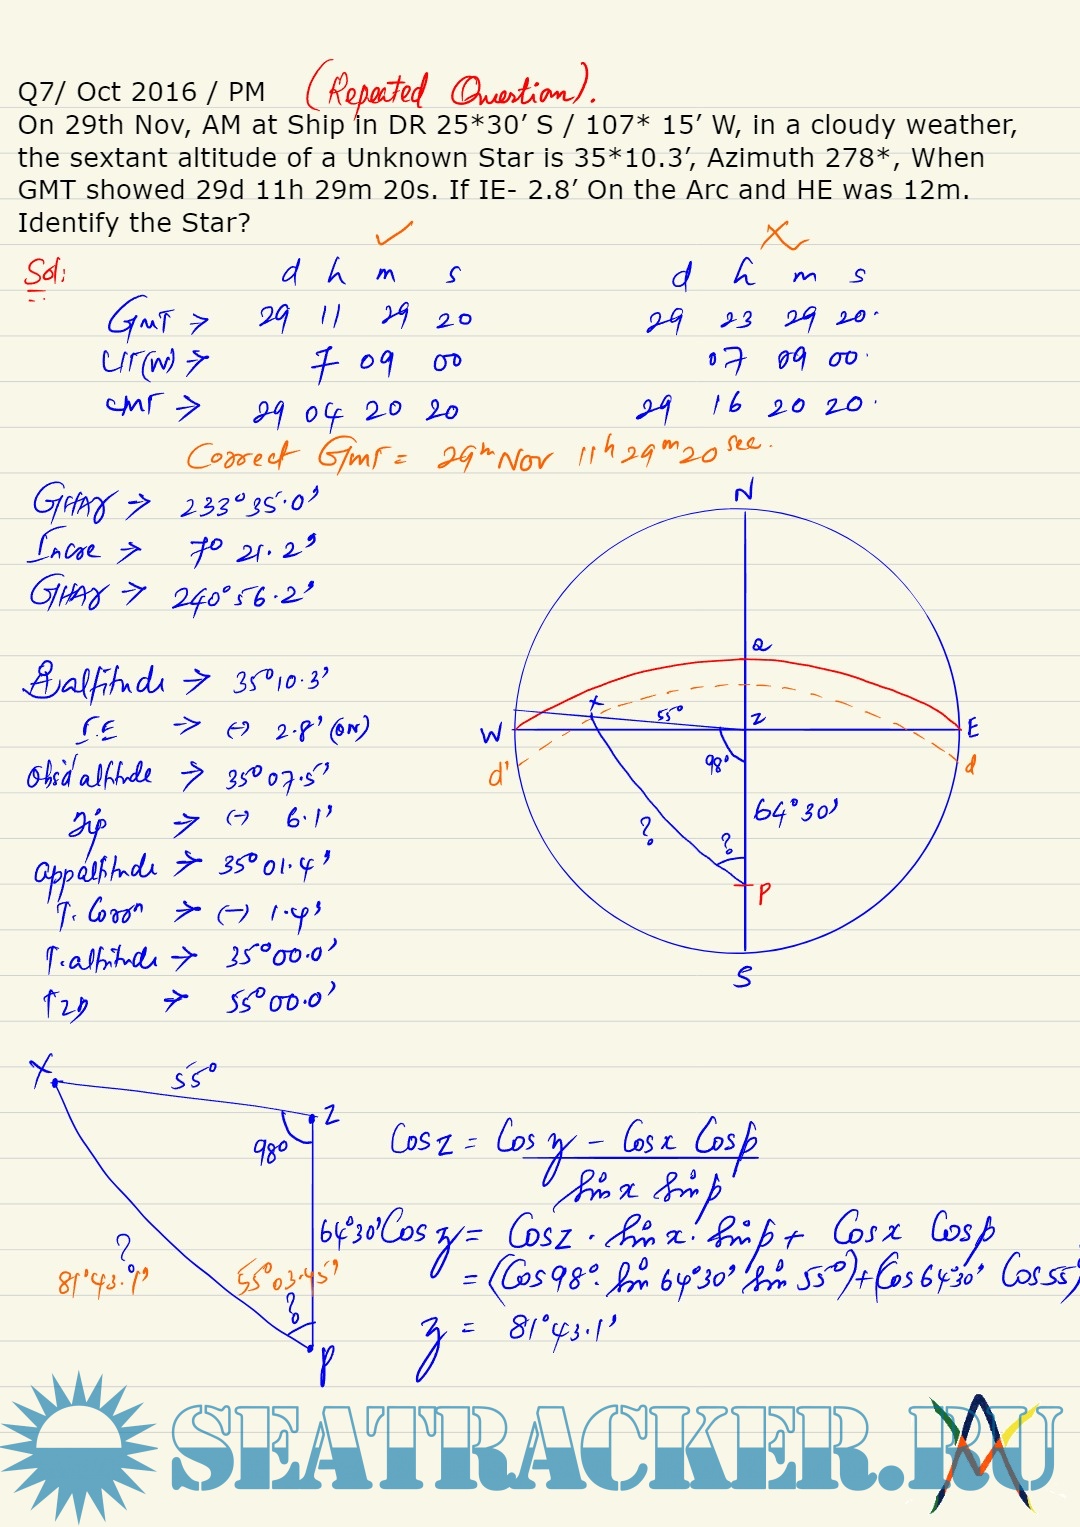 Q7/ Oct 2016 / PM (Repeated Question).
On 29th Nov, AM at Ship in DR 25*30′ S / 107* 15′ W, in a cloudy weather,
the sextant altitude of a Unknown Star is 35*10.3′, Azimuth 278*, When
GMT showed 29d 11h 29m 20s. If IE- 2.8′ On the Arc and HE was 12m.
Identify the Star?
✓ ✗
Sol:
d h m s d h m s
GMT → 29 11 29 20 29 23 29 20.
LIT(W) → 7 09 00 07 09 00.
LMT → 29 04 20 20 29 16 20 20.
Correct GMT = 29th Nov 11h 29m 20sec.
GHAγ → 233°35.0'
Incre → 7° 21.2'
GHAγ → 240°56.2'
S.altitude → 35°10.3'
I.E → (-) 2.8' (ON)
Obs'd altitude → 35°07.5'
Dip → (-) 6.1'
app altitude → 35°01.4'
T. Corrn → (-) 1.4'
T.altitude → 35°00.0'
TZD → 55°00.0'
N
Q
X 55° Z
W E
d' 98° d
64°30'
? ?
P
S
X 55° Z
98°
Cos Z = Cos z - Cos x Cos p
Sin x Sin p
64°30' Cos z = Cos Z . Sin x . Sin p + Cos x Cos p
? 81°43.1' 55°03.45' ?
= (Cos 98° . Sin 64°30' Sin 55°) + (Cos 64°30' Cos 55°)
z = 81°43.1'
P
SEATRACKER.RU